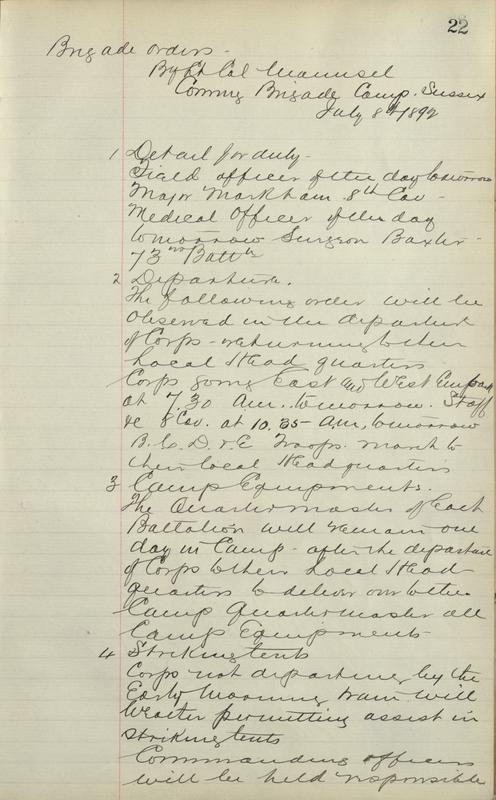 22
Brigade orders -
By Lt Col Maunsel
Comng Brigade Camp. Sussex
July 8th 1892
1 Detail for duty -
Field officer of the day tomorrow
Major Markham 8th Cav -
Medical Officer of the day
tomorrow Surgeon Baxter -
73rd Battn
2 Departure.
The following order will be
observed in the departure
of Corps - returning to their
Local Head quarters
Corps going East and West Embark
at 7.30 Am. tomorrow. Staff
&c 8 Cav. at 10.35 Am, tomorrow
B. C. D. & E Troops. march to
their local Headquarters
3 Camp Equipments.
The Quartermaster of each
Battalion will remain one
day in Camp - after the departure
of Corps to their Local Head
quarters to deliver over to the
Camp Quartermaster all
Camp Equipments
4 Striking tents
Corps not departing by the
Early Morning train will
Weather permitting assist in
striking tents
Commanding officers
will be held responsible